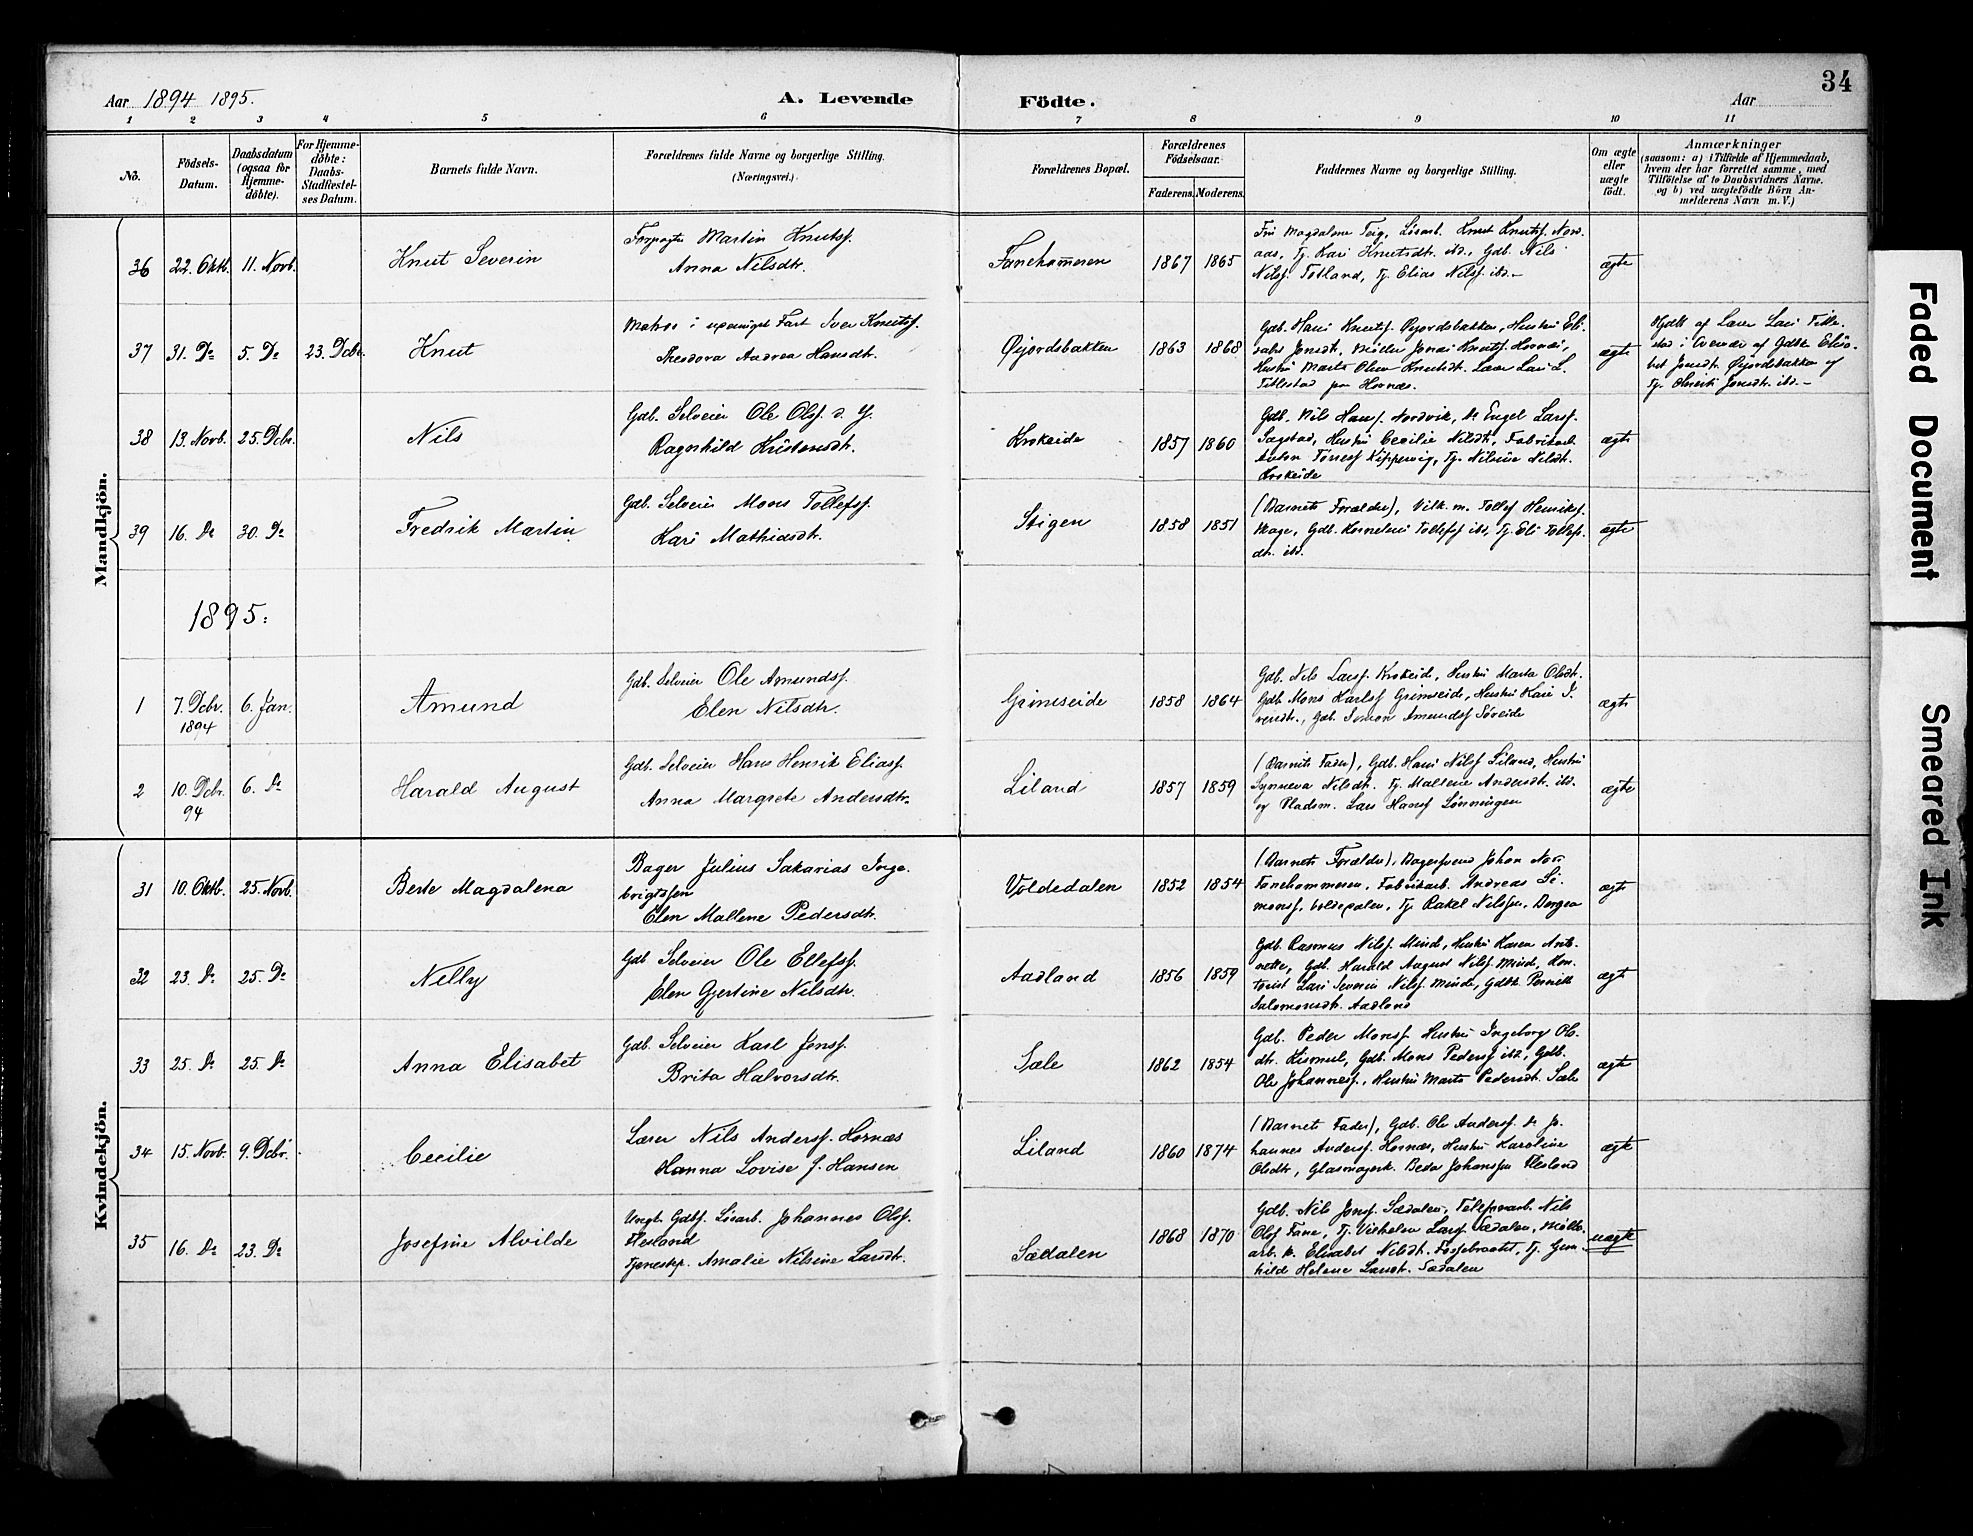 Aar 1894 1895.
A. Levende Födte.
Aar
34
1 2 3 4 5 6 7 8 9 10 11
No.
Födsels-Datum.
Daabsdatum (ogsaa for Hjemme-döbte).
For Hjemme-döbte: Daabs-Stadfæstel-ses Datum.
Barnets fulde Navn.
Forældrenes fulde Navne og borgerlige Stilling.
(Næringsvei.)
Forældrenes Bopæl.
Forældrenes Födselsaar.
Faderens. Moderens.
Faddernes Navne og borgerlige Stilling.
Om ægte eller uægte födt.
Anmærkninger
(saasom: a) i Tilfælde af Hjemmedaab,
hvem der har forrettet samme, med
Tilföielse af to Daabsvidners Navne.
og b) ved uægtefödte Börn An-
melderens Navn m. V.)
Mandkjön.
36 22. Oktb. 11. Novb. Knut Severin
Martin Knutsf.
Anna Nilsdtr.
Fanehammeren 1867 1865
Magdalene Teig, Lösarb. Knut Knutsf. Nord-
aas, Tj. Kari Knutsdtr. ibd. Gdb. Nils
Nilsf. Totland, Tj. Elias Nilsf. ibd.
ægte
37 31. Do 5. Do 23. Dcbr. Knut
Matros i Fart Iver Knutsf.
Theodora Andrea Hansdtr.
Øijordsbakken 1863 1868
Gdb. Hans Knutsf. Øijordsbakken, Hustru Eli-
sabet Jonsdt, Möller Jonas Knutsf. Hornæs,
Hustru Marta Olina Knutsdt. Lærer Lars L.
Titlestad paa Hornæs.
ægte
Hjdbt. af Lærer Lars Title-
stad i Overvær af Gdbk Elisa-
bet Jonsdtr. Øijordsbakken og
Tj. Jonsdtr. ibd.
38 13. Novb. 25. Dcbr. Nils
Gdb. Selveier Ole Olsf. d. y.
Ragnhild Kristensdtr.
Krokeide 1857 1860
Gdb. Nils Hansf. Nordvik, Do Engel Larsf.
Sagstad, Hustru Cecilie Nilsdt, Fabrikarb.
Anton Kippervig, Tj. Nilsine Nilsdt.
Krokeide
ægte
39 16. Do 30. Do Fredrik Martin
Gdb. Selveier Mons Tollefsf.
Kari Mathiasdtr.
Stigen 1858 1851
(Barnets Forældre), Tollef Henriksf.
Skage, Gdb. Kornelius Tollefsf ibd, Tj. Eli Tollefs-
dtr. ibd.
ægte
1895.
1 7. Dcbr. 1894 6. Jan. Amund
Gdb. Selveier Ole Amundsf.
Elen Nilsdtr.
Grimseide 1858 1864
Gdb. Nils Larsf. Krokeid, Hustru Marta Olsdt.
Gdb. Mons Karlsf Grimseide, Hustru Kari I-
versdtr., Gdb. Simon Amundsf Söreide
ægte
2 10. Dcbr. 94 6. Do Harald August
Gdb. Selveier Hans Henrik Eliasf.
Anna Margrete Andersdtr.
Liland 1857 1859
(Barnets Fader), Gdb. Hans Nilsf Liland, Hustru
Synneva Nilsdt. Tj. Mallene Andersdt. ibd.
og Pladsm. Lars Hansf Lönningen
ægte
Kvindekjön.
31 10. Oktb. 25. Novb. Berte Magdalena
Bager Julius Sakarias Inge-
brigtsen
Elen Mallene Pedersdtr.
Voldedalen 1852 1854
(Barnets Forældre), Bagersvend Johan
Fanehammeren, Fabrikarb. Andreas Si-
monsf. Voldedalen, Tj. Rakel Nilssen. Bergen
ægte
32 23. Do 25. Do Nelly
Gdb. Selveier Ole Ellefsf.
Elen Gjertine Nilsdtr.
Aadland 1856 1859
Gdb. Rasmus Nilsf. Minde, Hustru Karen Anto-
nette, Gdb. Harald August Nilsf Minde, Kon-
torist Lars Severin Nilsf. Minde, Gdbk. Pernille
Salomonsdt. Aadland
ægte
33 25. Do 25. Do Anna Elisabet
Gdb. Selveier Karl Jensf.
Brita Halvorsdtr.
Sæle 1862 1854
Gdb. Peder Monsf. Hustru Ingeborg Ols-
dtr. Kismul, Gdb. Mons Pedersf ibd, Gdb.
Ole Johannesf., Hustru Marta Pedersdt. Sæle
ægte
34 15. Novb. 9. Dcbr. Cecilie
Lærer Nils Andersf. Hornæs
Hanna Lovise f. Hansen
Liland 1860 1874
(Barnets Fader), Gdb. Ole Andersf. Do Jo-
hannes Andersf. Hornæs, Hustru Karoline
Olsdtr, Glasmagerk. Beda Johanssen Flesland
ægte
35 16. Do 23. Do Josefine Alvilde
Ungk. Gdbf. Lösarb. Johannes Olsf.
Flesland
Tjenestep. Amalie Nilsine Larsdtr.
Sædalen 1868 1870
Gdb. Nils Jonsf. Sædalen, Telefonarb. Nils
Olsf Fane, Tj. Vilhelm Larsf. Sædalen, Mölle-
arb. k. Elisabet Nilsdt. Fossebraatet, Tj. Gun-
hild Helene Larsdt. Sædalen
uægte
Faded Document
Smeared Ink